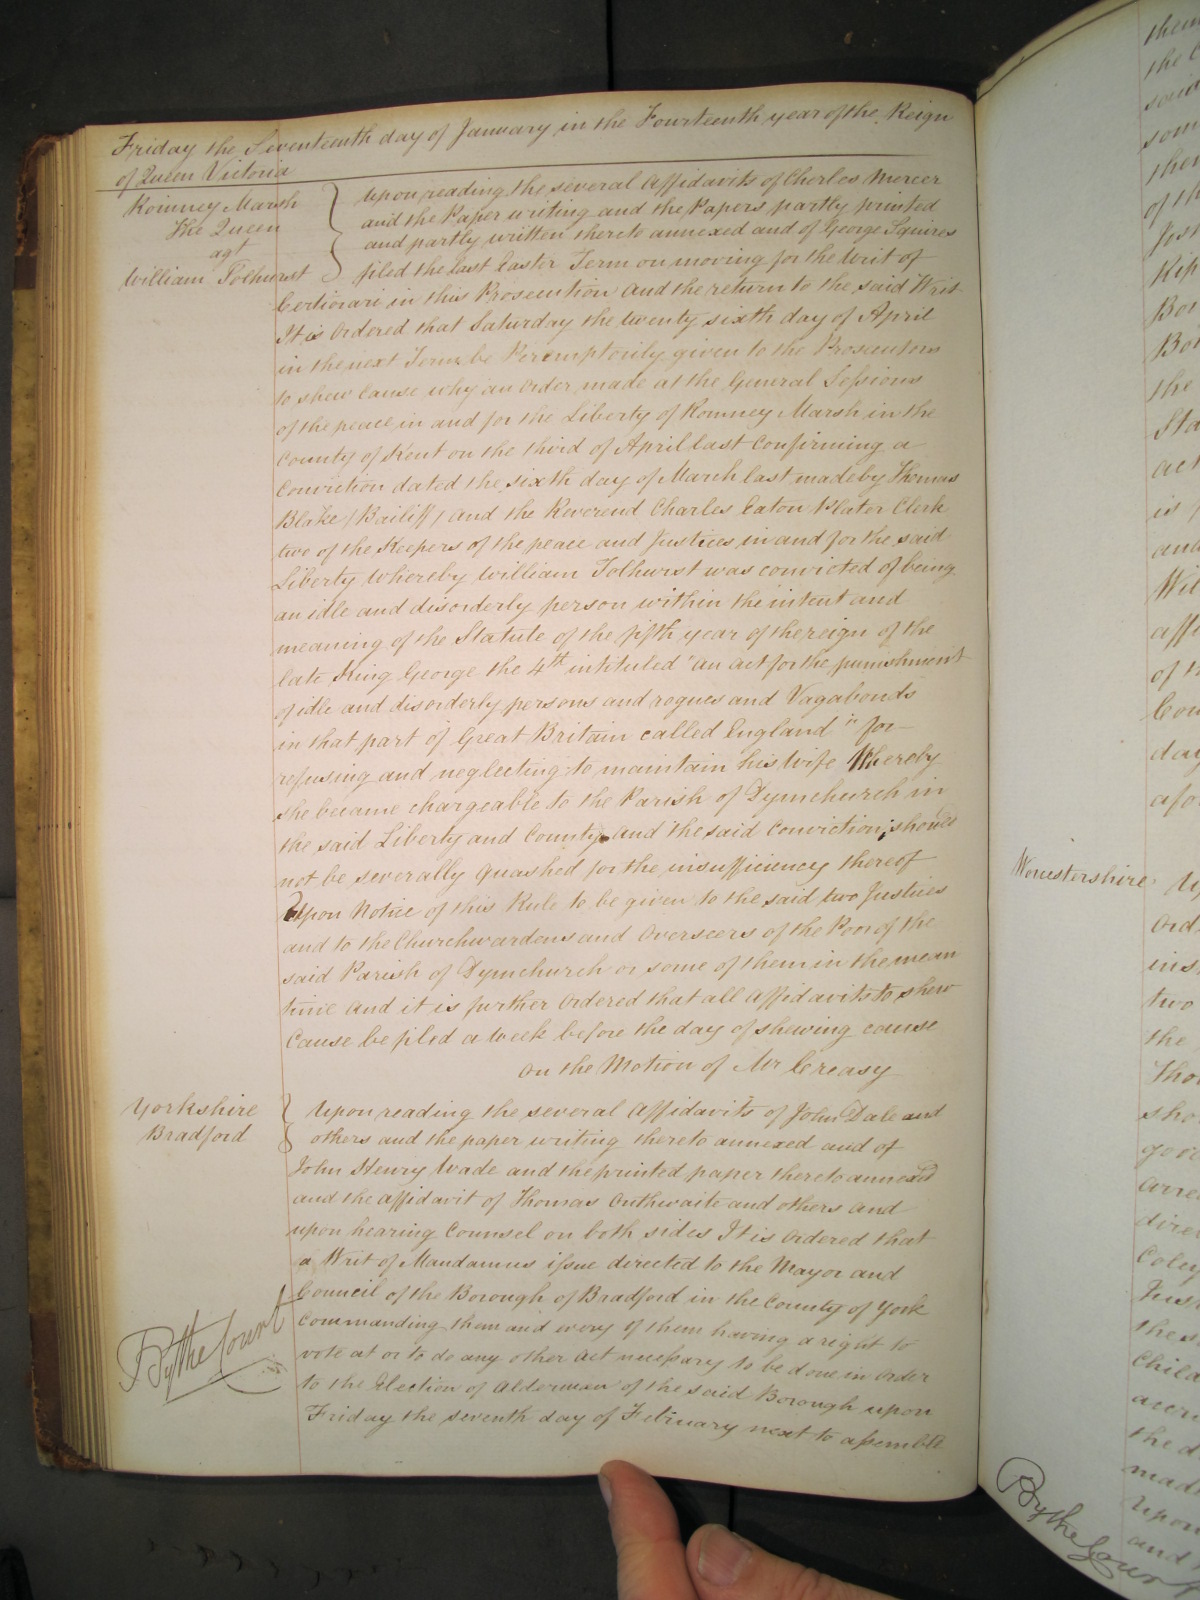 Friday the Seventeenth day of January in the Fourteenth year of the Reign
of Queen Victoria
Romney Marsh
The Queen
agt
William Tolhurst
Upon reading the several Affidavits of Charles Mercer
and the Paper writing and the Papers partly printed
and partly written thereto annexed and of George Squires
filed the last Easter Term on moving for the Writ of
Certiorari in this Prosecution and the return to the said Writ
It is Ordered that Saturday the twenty sixth day of April
in the next Term be Peremptorily given to the Prosecutors
to shew Cause why an Order made at the General Sessions
of the peace in and for the Liberty of Romney Marsh in the
County of Kent on the third of April last Confirming a
Conviction dated the sixth day of March last made by Thomas
Blake (Bailiff) and the Reverend Charles Eaton Plater Clerk
two of the Keepers of the peace and Justices in and for the said
Liberty Whereby William Tolhurst was convicted of being
an idle and disorderly person within the intent and
meaning of the Statute of the fifth year of the reign of the
late King George the 4th intituled "an act for the punishment
of idle and disorderly persons and rogues and Vagabonds
in that part of Great Britain called England" for
refusing and neglecting to maintain his Wife Whereby
she became chargeable to the Parish of Dymchurch in
the said Liberty and County and the said Conviction should
not be severally quashed for the insufficiency thereof
Upon Notice of this Rule to be given to the said two Justices
and to the Churchwardens and Overseers of the Poor of the
said Parish of Dymchurch or some of them in the mean
time and it is further Ordered that all Affidavits to shew
Cause be filed a Week before the day of shewing cause
On the Motion of Mr Creasy
Yorkshire
Bradford
Upon reading the several Affidavits of John Dale and
others and the paper writing thereto annexed and of
John Henry Wade and the printed paper thereto annexed
and the affidavit of Thomas Outhwaite and others and
upon hearing Counsel on both sides It is Ordered that
a Writ of Mandamus issue directed to the Mayor and
Council of the Borough of Bradford in the County of York
Commanding them and every of them having a right to
vote at or to do any other act necessary to be done in order
to the Election of Aldermen of the said Borough upon
Friday the seventh day of February next to assemble
By the Court
Worcestershire
By the Court